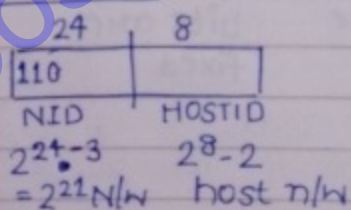 24 8
110
NID HOSTID
2²⁴⁻³ 2⁸-2
=2²¹ N/w host n/w